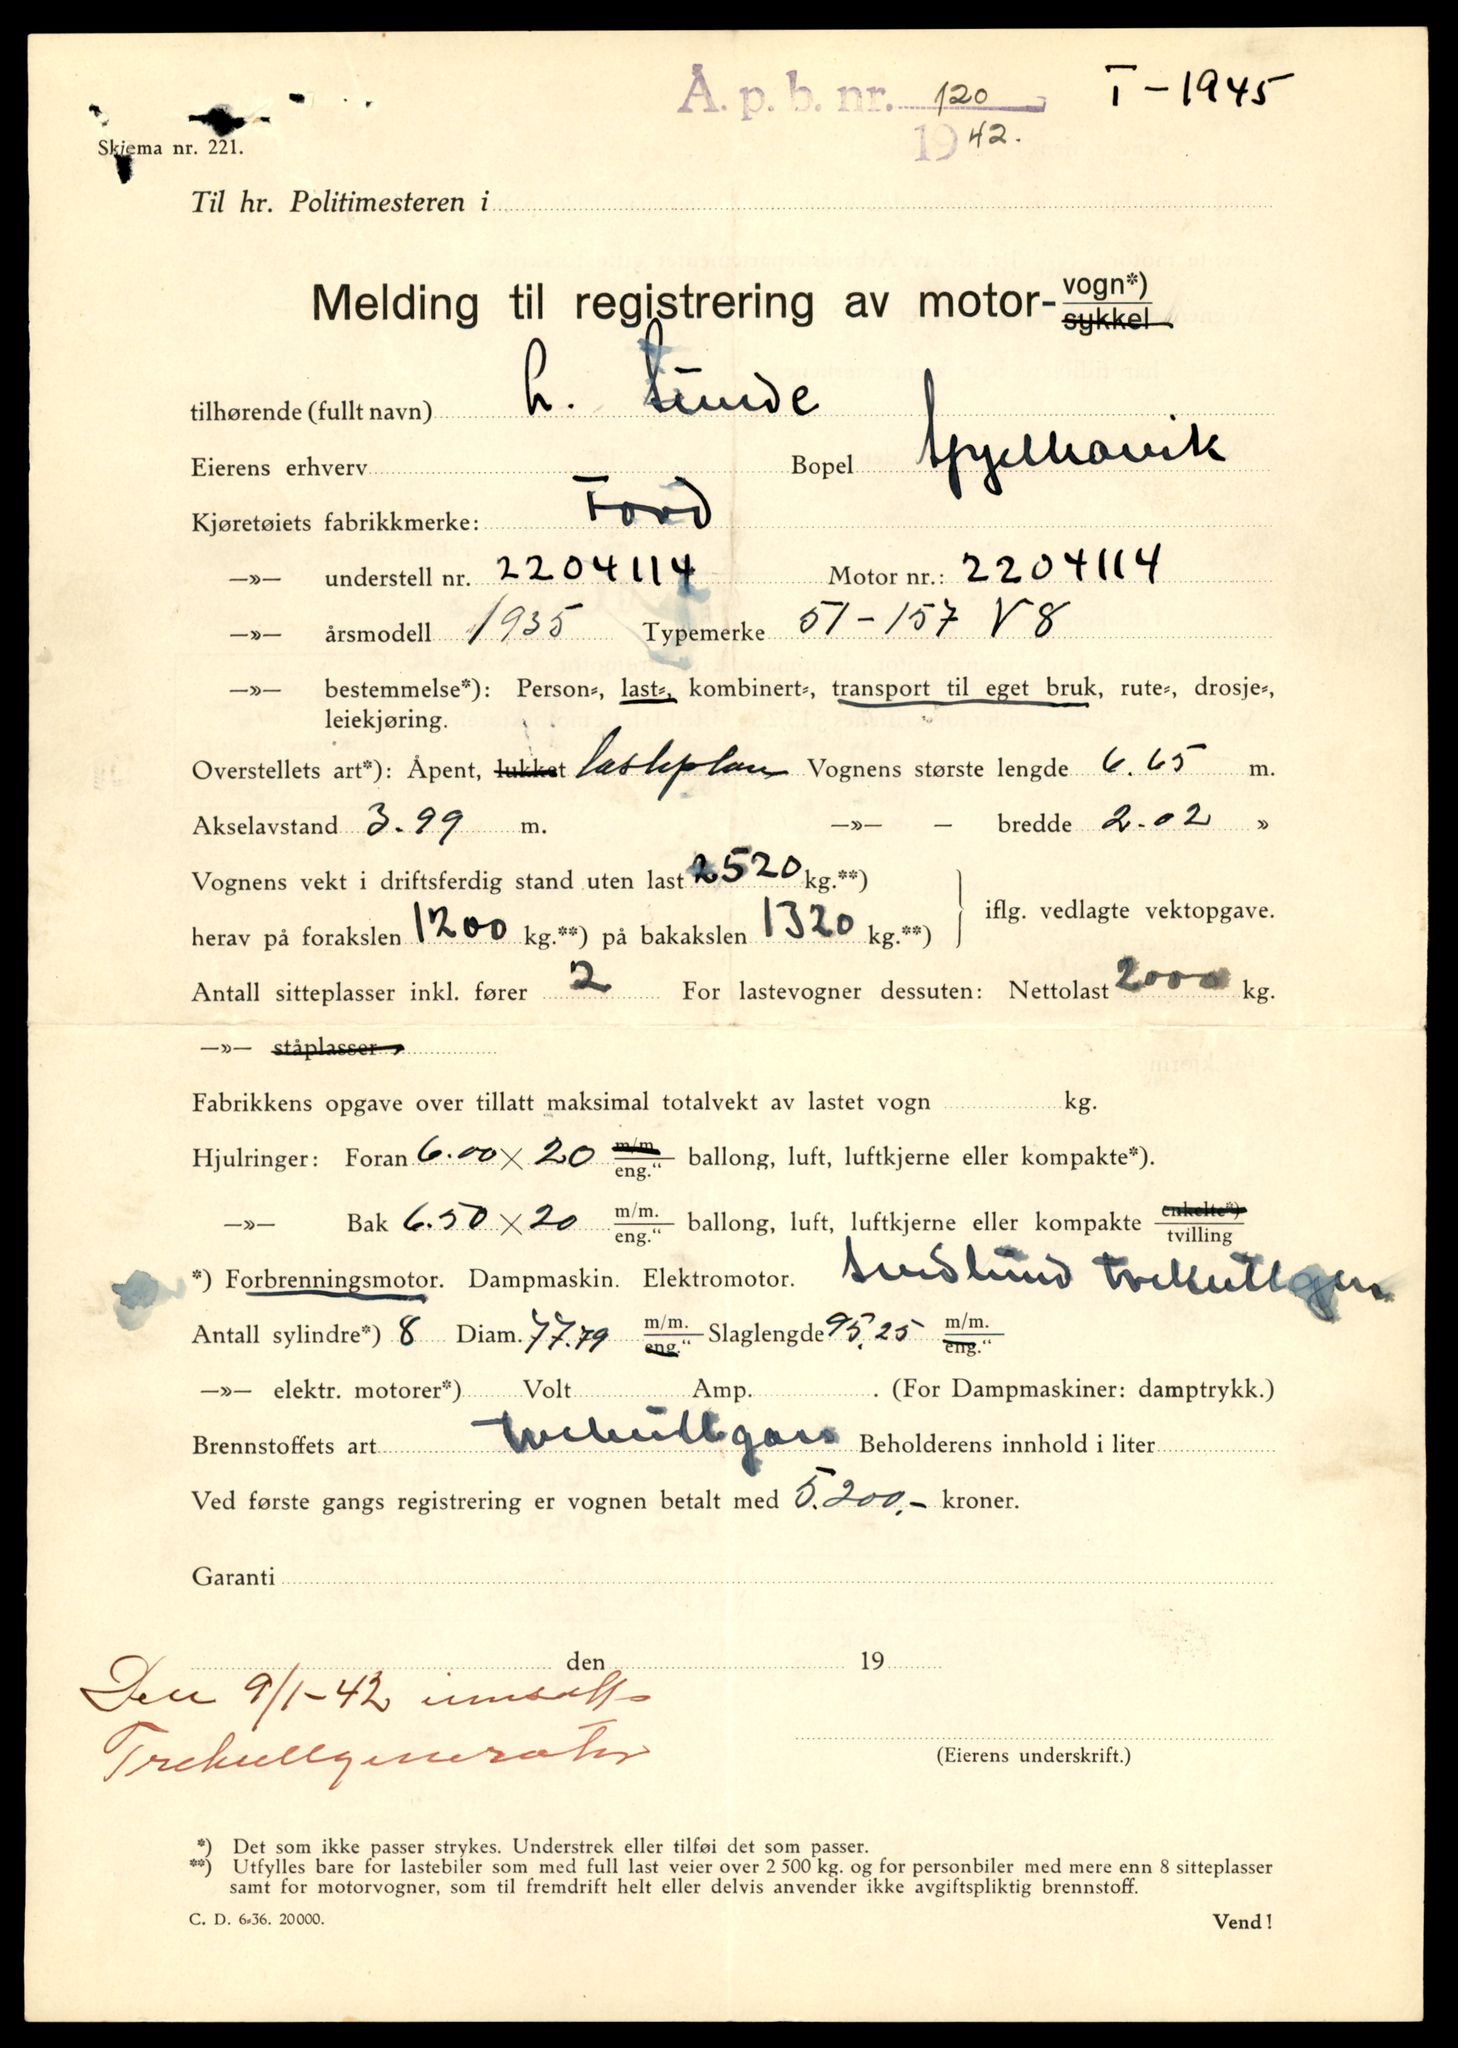 Å. p. b. nr. 120
1942.
I - 1945
Skjema nr. 221.
Til hr. Politimesteren i
Melding til registrering av motor- vogn*)
sykkel
tilhørende (fullt navn) L. Sunde
Eierens erhverv Bopel Spjelkavik
Kjøretøiets fabrikkmerke: Ford
—»— understell nr. 2204114 Motor nr.: 2204114
—»— årsmodell 1935 Typemerke 51-157 V8
—»— bestemmelse*): Person-, last-, kombinert-, transport til eget bruk, rute-, drosje-,
leiekjøring.
Overstellets art*): Åpent, lukket lasteplan Vognens største lengde 6.65 m.
Akselavstand 3.99 m. —»— — bredde 2.02 »
Vognens vekt i driftsferdig stand uten last 2520 kg.**)
herav på forakslen 1200 kg.**) på bakakslen 1320 kg.**)
iflg. vedlagte vektopgave.
Antall sitteplasser inkl. fører 2 For lastevogner dessuten: Nettolast 2000 kg.
—»— ståplasser
Fabrikkens opgave over tillatt maksimal totalvekt av lastet vogn kg.
Hjulringer: Foran 6.00 × 20 m/m. eng." ballong, luft, luftkjerne eller kompakte*).
—»— Bak 6.50 × 20 m/m. eng." ballong, luft, luftkjerne eller kompakte enkelte*) tvilling
*) Forbrenningsmotor. Dampmaskin. Elektromotor. trekullgen
Antall sylindre*) 8 Diam. 77.79 m/m. eng." Slaglengde 95.25 m/m. eng."
—»— elektr. motorer*) Volt Amp. . (For Dampmaskiner: damptrykk.)
Brennstoffets art trekullgass Beholderens innhold i liter
Ved første gangs registrering er vognen betalt med 5.200,- kroner.
Garanti
den 19
Den 9/1-42 innsatt
Trekullgenerator
(Eierens underskrift.)
*) Det som ikke passer strykes. Understrek eller tilføi det som passer.
**) Utfylles bare for lastebiler som med full last veier over 2 500 kg. og for personbiler med mere enn 8 sitteplasser
samt for motorvogner, som til fremdrift helt eller delvis anvender ikke avgiftspliktig brennstoff.
C. D. 6-36. 20000.
Vend!